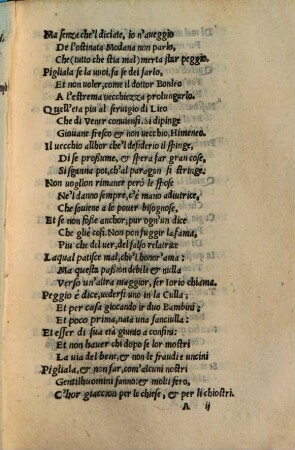 Ma senza che'l diciate, io n'aueggio
De l'ostinata Modana non parlo,
Che (tutto che stia mal) merta star peggio.
Pigliala se la uoi, fa se dei farlo,
Et non uoler, come il dottor Bonleo
A l'estrema uecchiezza prolungarlo.
Quell'eta piu al seruigio di Lieo
Che di Vener conuiensi. Si dipinge
Giouane fresco & non uecchio, Himeneo.
Il uecchio allhor che'l desiderio il spinge,
Di se prosume, & spera far gran cose,
Si sganna poi, ch'al paragon si stringe.
Non uoglion rimaner però le spose
Ne'l danno sempre, c'è mano adiutrice,
Che souiene a le pouer bisognose,
Et se non fosse anchor, pur ogn'un dice
Che gliè cosi. Non pon fuggir la fama,
Piu che del uer, del falso relatrice
Laqual patisce mal, che'l honor'ama:
Ma questa passion debile & nulla
Verso un'altra maggior, ser Iorio chiama.
Peggio è dice, uedersi uno in la Culla;
Et per casa giocando ir duo Bambini;
Et poco prima, nata una fanciulla:
Et esser di sua età giunto a confini:
Et non hauer chi dopo se lor mostri
La uia del bene, & non le fraudi e uncini
Pigliala, & non far, com'alcuni nostri
Gentilhuomini fanno: & molti fero,
C'hor giaccion per le chiese, & per li chiostri.
A ij